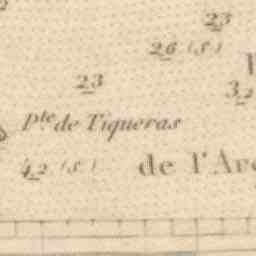 23
26 (S)
23
32
Pte de Tiqueras
42 (S)
de l'Ar